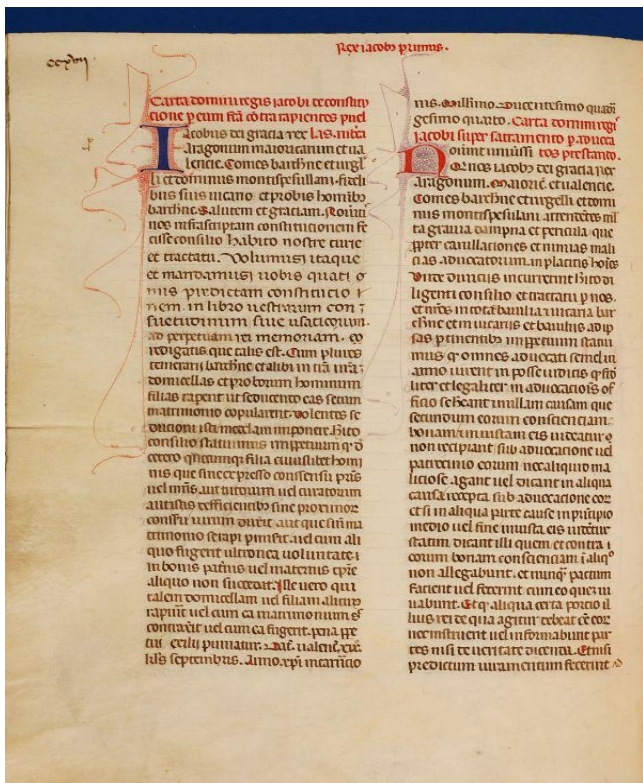 Rex iacobus primus.
ccxviii
Carta domini regis iacobi de constitu
cione per eum facta contra rapientes puel
las. infra
Iacobus dei gracia rex
aragonum maioricarum et ua
lencie. Comes barchne et urgel
li et dominus montispessullani. fideli
bus suis uicario et probis hominibus
barchne. Salutem et graciam. Noueritis
nos infrascriptam constitucionem fe
cisse consilio habito nostre curie
et tractatu. Volumus itaque
et mandamus uobis quati
nus predictam constitucio
nem. in libro uestrarum con
suetudinum siue usaticorum.
ad perpetuam rei memoriam.
redigatis que talis est. Cum plures
temerarii barchne et alibi in
domicellas et proborum hominum
filias rapent ut seducendo eas secum
matrimonio copularent. uolentes se
ducioni iste mederi imponere. hito
consilio statuimus imperpetuum qd
cetero quecumque filia cuiuslibet homi
nis que sine expresso consensu pris
uel mris. aut tutorum uel curatorum
aut istis deficientibus sine proximor
consensu uirum duxerit aut que
trimonio se rapi permiserit. uel cum ali
quo fugerit ultronea uoluntate.
in bonis paternis uel maternis
aliquo non succedat. Ille uero qui
talem domicellam uel filiam alicuius
rapuerit uel cum ea matrimonium
contraxerit uel cum ea fugerit. pena ppe
tui exilii puniatur. Dat. ualencie.
kls septembris. Anno. xpi incarnacio
nis. Millimo. Ducentesimo quadra
gesimo quarto. Carta domini regis
iacobi super sacramento p aduoca
tos prestando.
Nouerint uniuersi
Q nos iacobus dei gracia rex
aragonum. Maioric et ualencie.
Comes barchne et urgelli et domi
nus montispesulani. attendentes ml
ta grauia dampna et pericula. que
ppter cauillaciones et nimias mali
cias aduocatorum. in placitis hoies
incurrerint. hito di
ligenti consilio et tractatu p nos.
et nros in tota baiulia et uicaria bar
chne et in uicariis et baiuliis ad ip
sas ptinentibus imppetuum statui
mus q omnes aduocati semel in
anno iurent in posse iudicis
liter et legaliter in aduocacionis of
ficio se habeant. nullam causam que
secundum eorum conscienciam
bonam iniustam eis uideatur
non recipiant sub aduocacione uel
patrocinio eorum nec aliquid ma
liciose agant uel dicant in aliqua
causa recepta sub aduocacione eor
et si in aliqua parte cause in principio
medio uel fine iniusta eis uidetur
statim dicant illi quem et contra
eorum bonam conscienciam aliquid
non allegabunt. et nunq pactum
facient uel fecerint cum eo quem iu
uabunt. Et q aliqua certa porcio il
lius rei de qua agitur debeat eor
nec instruent uel informabunt par
tes nisi de ueritate dicenda. Et nisi
predictum iuramentum fecerint